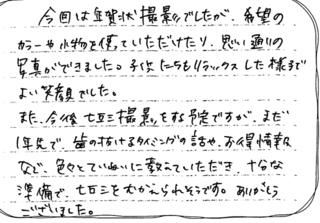 今回は年賀状撮影でしたが、希望の
カラーや小物を使っていただけたり、思い通りの
写真ができました。子供たちもリラックスした様子で
よい笑顔でした。
また、今後七五三撮影をする予定ですが、まだ
1年先で、歯の抜けるタイミングの話や、お得情報
など、色々とていねいに教えていただき、十分な
準備で、七五三をむかえられそうです。ありがとう
ございました。